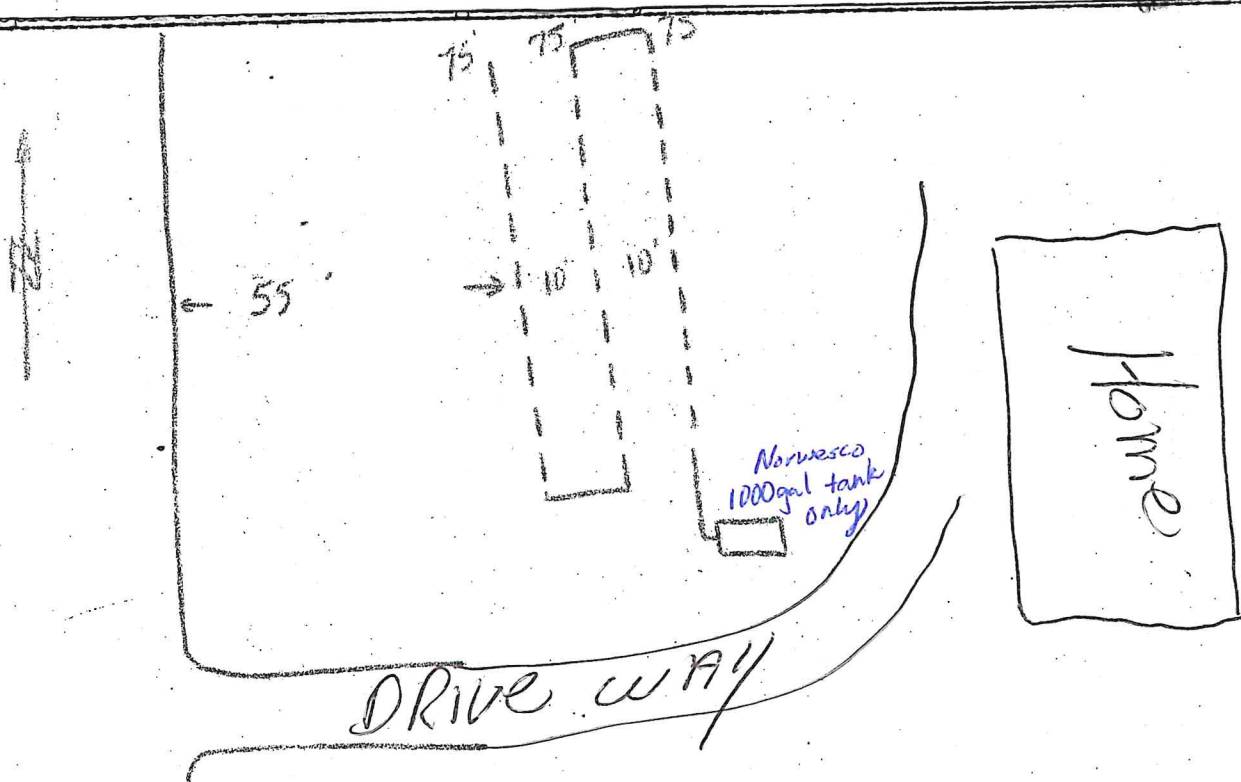 75'
75'
75'
N
55'
10'
10'
Home
Norwesco
1000gal tank
only
DRIVE WAY